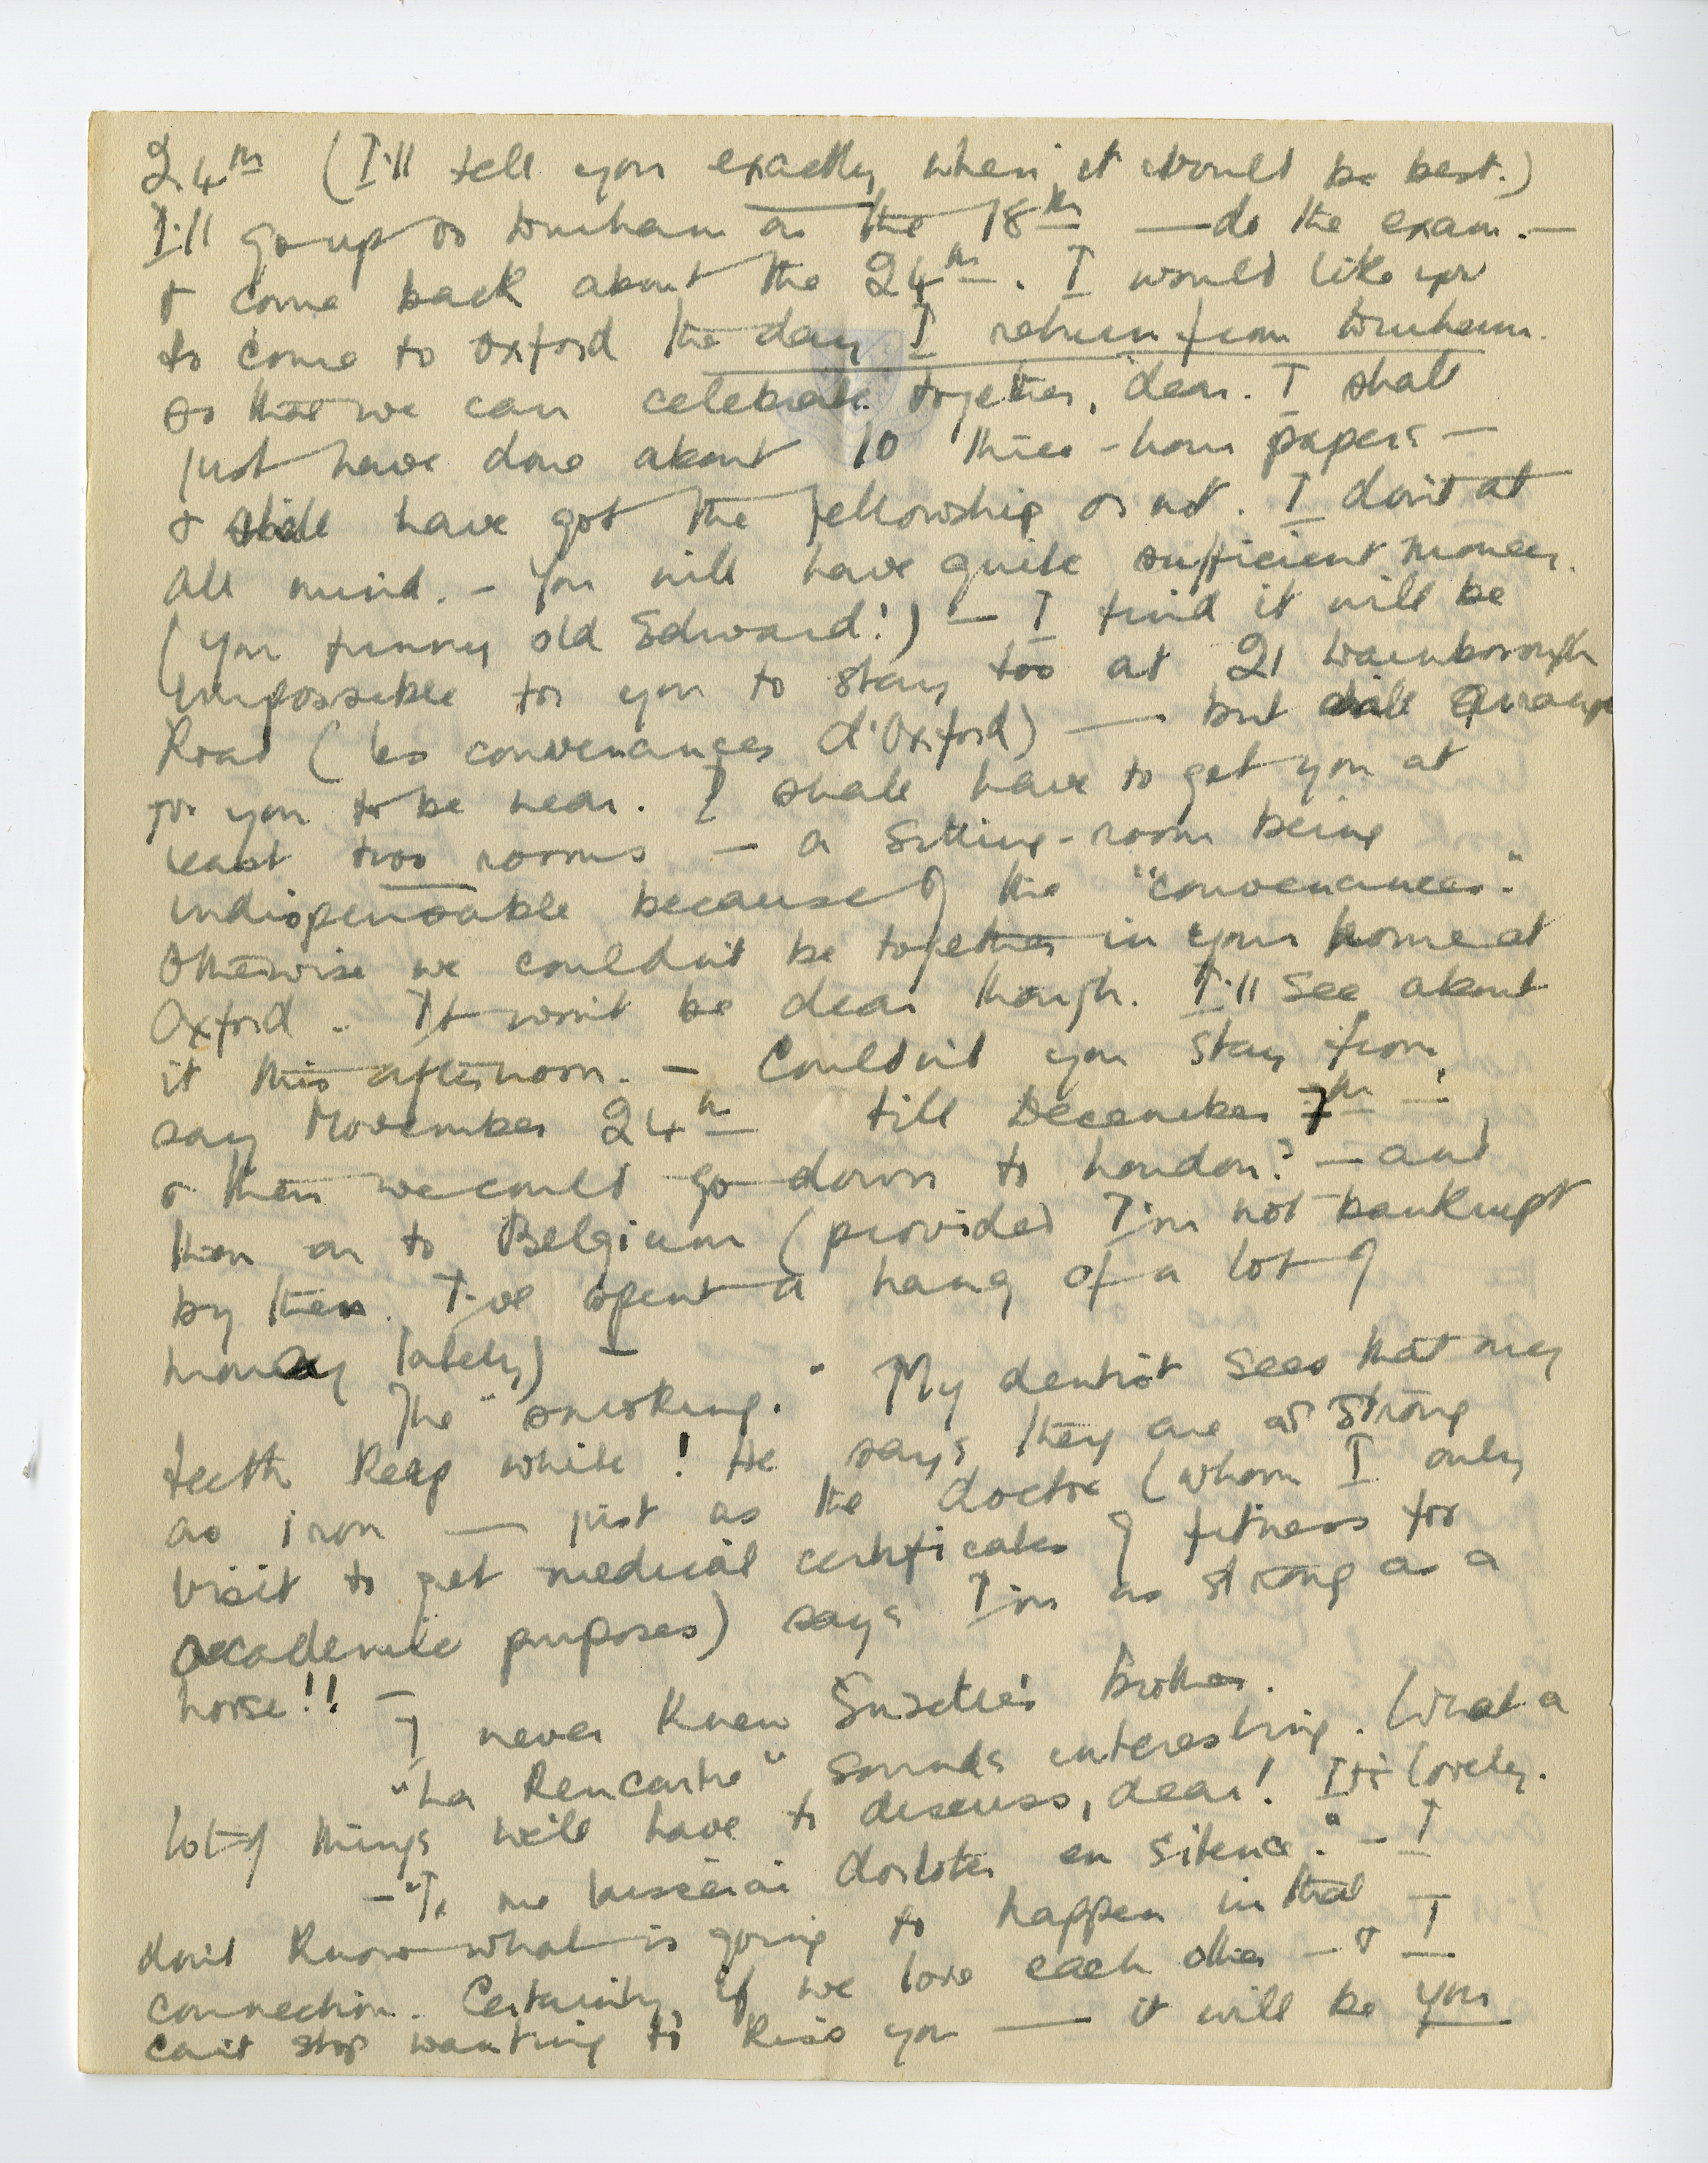 24th (I'll tell you exactly when it would be best.)
I'll go up to Durham on the 18th — do the exam. —
& come back about the 24th. I would like you
to come to Oxford the day I return from Durham.
so that we can celebrate together, dear. I shall
just have done about 10 three-hour papers —
& shall have got the fellowship or not. I don't at
all mind. — You will have quite sufficient money.
(You funny old Edward!) — I find it will be
impossible for you to stay too at 21 Wainborough
Road (les convenances d'Oxford) — but will arrange
for you to be near. I shall have to get you at
least two rooms — a sitting-room being
indispensable because of the "convenances".
Otherwise we couldn't be together in your home at
Oxford. It won't be dear though. I'll see about
it this afternoon. — Couldn't you stay from,
say November 24th till December 7th —
& then we could go down to London? — and
then on to Belgium (provided I'm not bankrupt
by then. I've spent a hang of a lot of
money lately) —
The "smoking." My dentist sees that my
teeth keep white! He says they are as strong
as iron — just as the doctor (whom I only
visit to get medical certificates of fitness for
academic purposes) says I'm as strong as a
horse!! —
I never knew Suzette's brother.
"La Rencontre" sounds interesting. What a
lot of things we'll have to discuss, dear! It's lovely.
— "Je me laisserai dorloter en silence." — I
don't know what is going to happen in that
connection. Certainly, if we love each other — & I
can't stop wanting to kiss you — it will be you